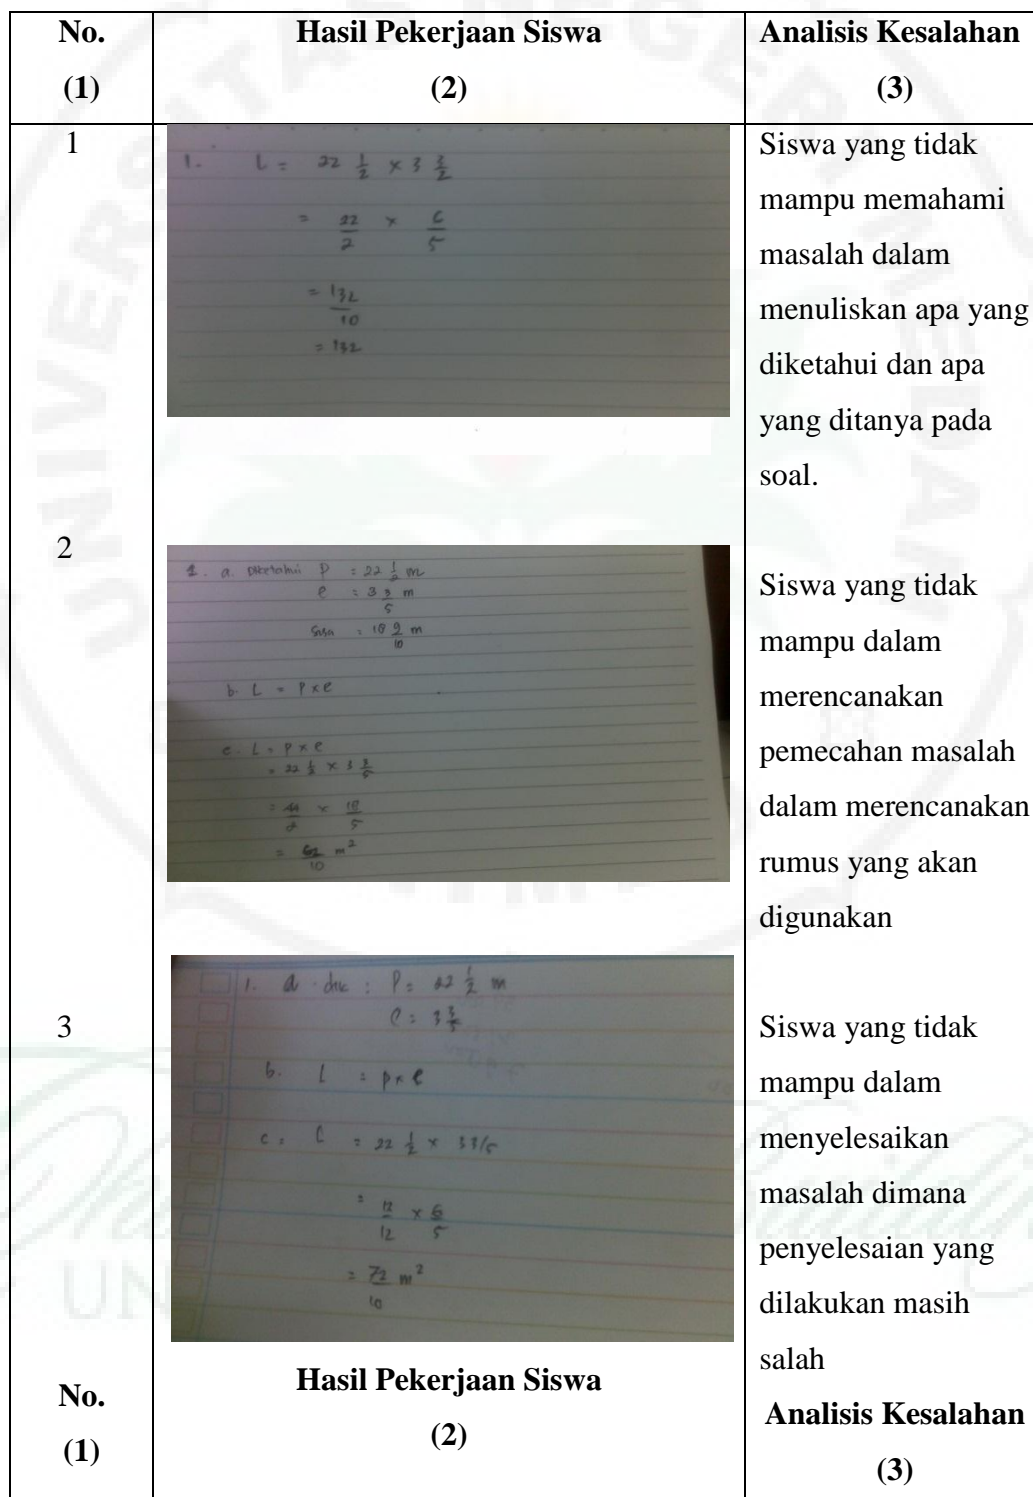 No.
(1)
Hasil Pekerjaan Siswa
(2)
Analisis Kesalahan
(3)
1
1. L = 22 1/2 × 3 3/2
= 22/2 × 6/5
= 132/10
= 132
Siswa yang tidak
mampu memahami
masalah dalam
menuliskan apa yang
diketahui dan apa
yang ditanya pada
soal.
2
a. Diketahui P = 22 1/2 m
l = 3 3/5 m
Sisa = 18 9/10 m
b. L = P x l
c. L = P x l
= 22 1/2 × 3 3/5
= 44/2 × 18/5
= 62/10 m²
Siswa yang tidak
mampu dalam
merencanakan
pemecahan masalah
dalam merencanakan
rumus yang akan
digunakan
3
1. a. dik : P = 22 1/2 m
l = 3 3/5
b. L = p x l
c. L = 22 1/2 × 3 3/5
= 12/12 × 6/5
= 72/10 m²
Siswa yang tidak
mampu dalam
menyelesaikan
masalah dimana
penyelesaian yang
dilakukan masih
salah
No.
(1)
Hasil Pekerjaan Siswa
(2)
Analisis Kesalahan
(3)